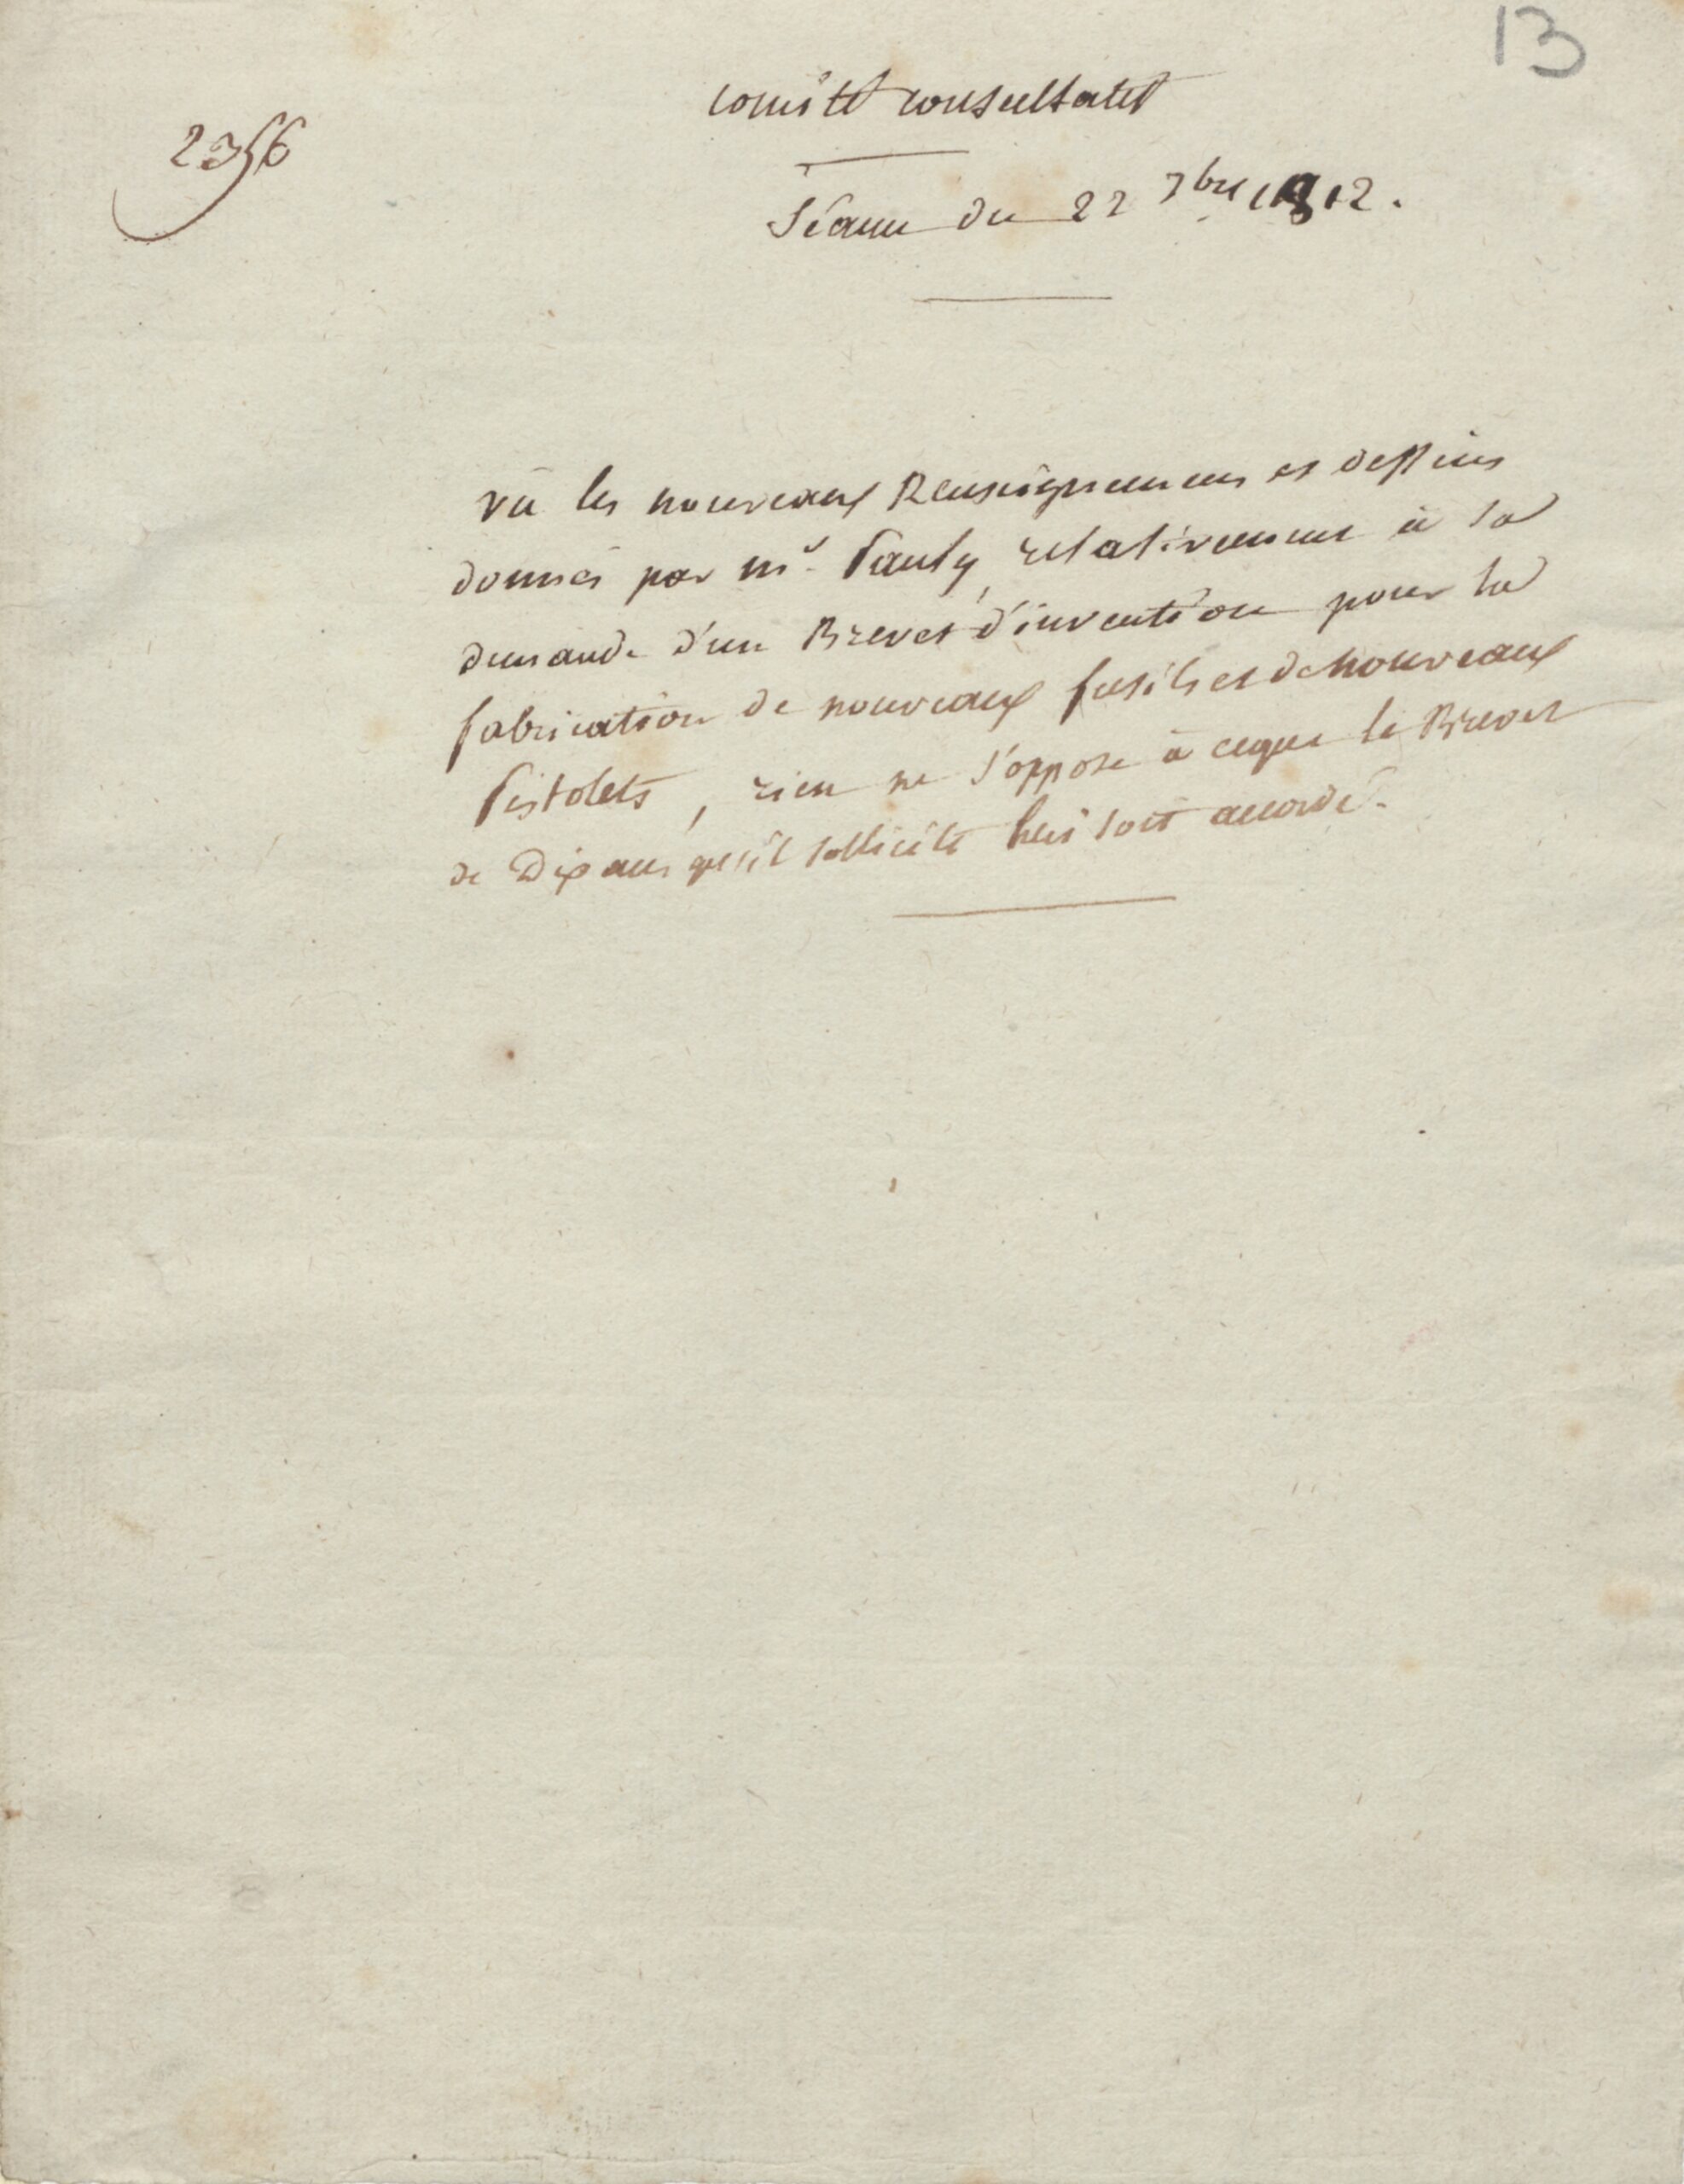 13
2356
Comité Consultatif
Séance du 22 7bre 1812.
Vu les nouveaux Renseignemens et dessins
donnés par mr. Pauly, relativement à sa
demande d'un Brevet d'invention pour la
fabrication de nouveaux fusils et de nouveaux
Pistolets, rien ne s'oppose à ceque le Brevet
de Dix ans qu'il sollicite lui soit accordé.